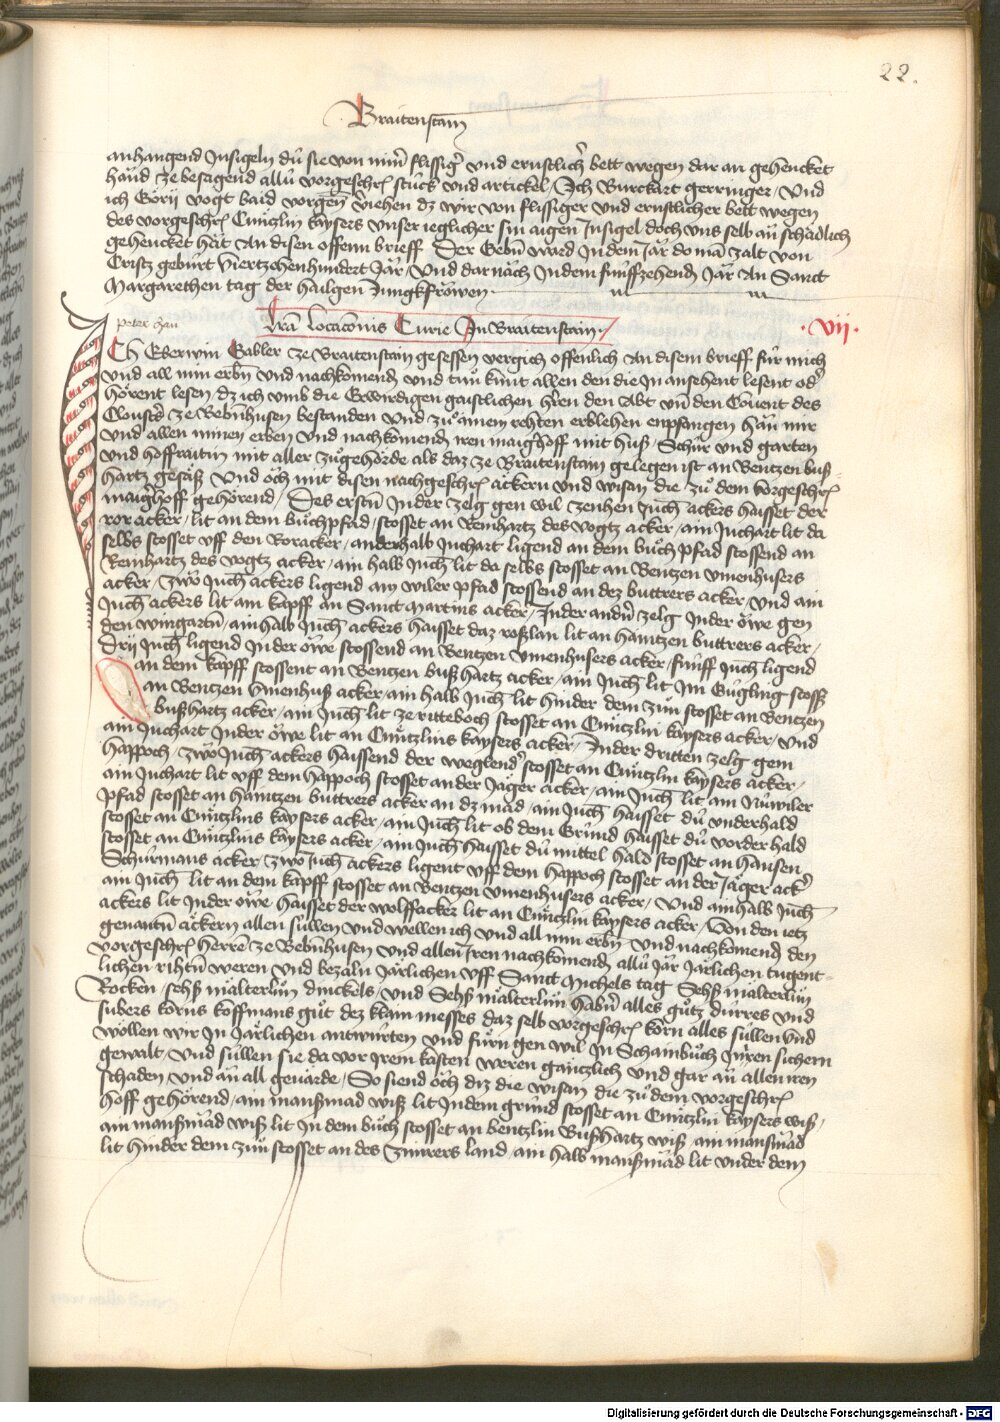 22.
Braitenstain
anhangend Insigeln dü sie von minr flissigr vnd ernstlichr bett wegen dar an gehencket
hand ze besagend allü vorgeschrn stück vnd artickel / Ich Burckart gerringer / Vnd
ich Görij vogt baid vorgenn veriehen dz wir von flissiger vnd ernstlicher bett wegen
des vorgeschrn Cuntzlin kaysers vnser ieglicher sin aigen Insigel doch vns selb an schadlich
gehencket hät An disen offenn brieff Der Gebn ward In dem Jar do man zalt von
Cristz geburt viertzehenhundert Jar / Vnd dar nach In dem fünffzehendn Jar An Sanct
Margarethen tag der hailgen Jungkfröwen
Peter han
Lra Locaconis Curie In Braitenstain
vij
Ich Eberwin Gabler ze Braitenstain gesessen vergich offenlich An disem brieff für mich
vnd all min erbn vnd nachkomendn vnd tun kunt allen den die In ansehent lesent odr
hörent lesen dz ich vmb die Erwirdigen gaistlichen hren den Abt vnd den Conuent des
Closters ze Bebnhusen bestanden Vnd zu ainem rehten erblehen enpfangen han mir
vnd allen minen erben vnd nachkomendn iren maighoff mit hus / Schür vnd garten
vnd hoffraitin mit aller zugehörde als daz ze Braitenstain gelegen ist an Bentzen buß
hartz gesäß Vnd öch mit disen nachgeschrn äckern vnd wisan die zu dem vorgeschrn
maighoff gehörend / Des erstn In der zelg gen wil zenhen Juch ackers haisset der
ror acker / lit an dem buchpfad / stosset an Reinhartz des vogtz acker / ain Juchart lit da
selbs stosset vff den Roracker / anderhalb Juchart ligend an dem buch pfad stossend an
Reinhartz des vogtz acker / ain halb Juch lit da selbs stosset an Bentzen vmenhusers
acker / Zwo Juch ackers ligend am wiler pfad stossend an dez buttrers acker / vnd ain
Juch ackers lit am kapff an Sanct Martins acker / In der andrn zelg In der öwe gen
den wingartn / ain halb Juch ackers haisset daz roßlan lit an haintzen buttrers acker /
Drij Juch ligend In der öwe stossend an Bentzen vmenhusers acker / fünff Juch ligend
an dem kapff stossent an Bentzen buß hartz acker / ain Juch lit Im Gugling stosß
an Bentzen vmenhuß acker / ain halb Juch lit hinder dem zun stosset an Bentzen
bußhartz acker / ain Juch lit ze ritteboch stosset an Cuntzlin kaysers acker / vnd
ain Juchart In der öwe lit an Cuntzlins kaysers acker / In der dritten zelg gem
happoch / zwo Juch ackers haissend der weglendr stosset an Cuntzlin kaysers acker /
ain Juchart lit vff dem happoch stosset an der Jäger acker / ain Juch lit am Nuwiler
pfad stosset an haintzen buttrers acker an dz mad / ain Juch haisset dü vnderhald
stosset an Cuntzlins kaysers acker / ain Juch lit ob dem Grund haisset dü vorder hald
stosset an Cuntzlins kaysers acker / ain Juch haisset dü mittel hald stosset an hansen
Schurmans acker / zwo Juch ackers ligent vff dem happoch stosset an der Jäger ackr
ain Juch lit an dem kapff stosset an Bentzen vmenhusers acker / Vnd ain halb Juch
ackers lit In der öwe haisset der wolffacker lit an Cuntzlin kaysers acker / Von den ietz
genantn äckern allen süllen vnd wellen ich vnd all min erbn vnd nachkomendn den
vorgeschrn herren ze Bebnhusen vnd allen Iren nachkomendn allü Jar Järlichen tugent
lichen rihtn weren vnd bezaln Järlichen vff Sanct Michels tag Sehß malterlün
Rocken / sehß malterlün dinckels / vnd Sehß malterlün habrn alles gutz dürres vnd
subers korns koffmans gut dez klain messes daz selb vorgeschrn korn alles süllen vnd
wöllen wir In Järlichen antwürten vnd fürn gen wil In Schainbuch In iren sichern
gewalt / vnd süllen sie da vor Irem kasten weren gäntzlich vnd gar an allen iren
schaden / vnd an all geuärde / So siend öch diz die wisan die zu dem vorgeschrn
hoff gehörend / ain manßmad wiß lit In dem grund stosset an Cuntzlin kaysers wiß /
ain manßmad wiß lit In dem buch stosset an bentzlin Bußhartz wiß / ain manßmad
lit hinder dem zun stosset an des Zimrers land / ain halb manßmad lit vnder dem
Digitalisierung gefördert durch die Deutsche Forschungsgemeinschaft - DFG